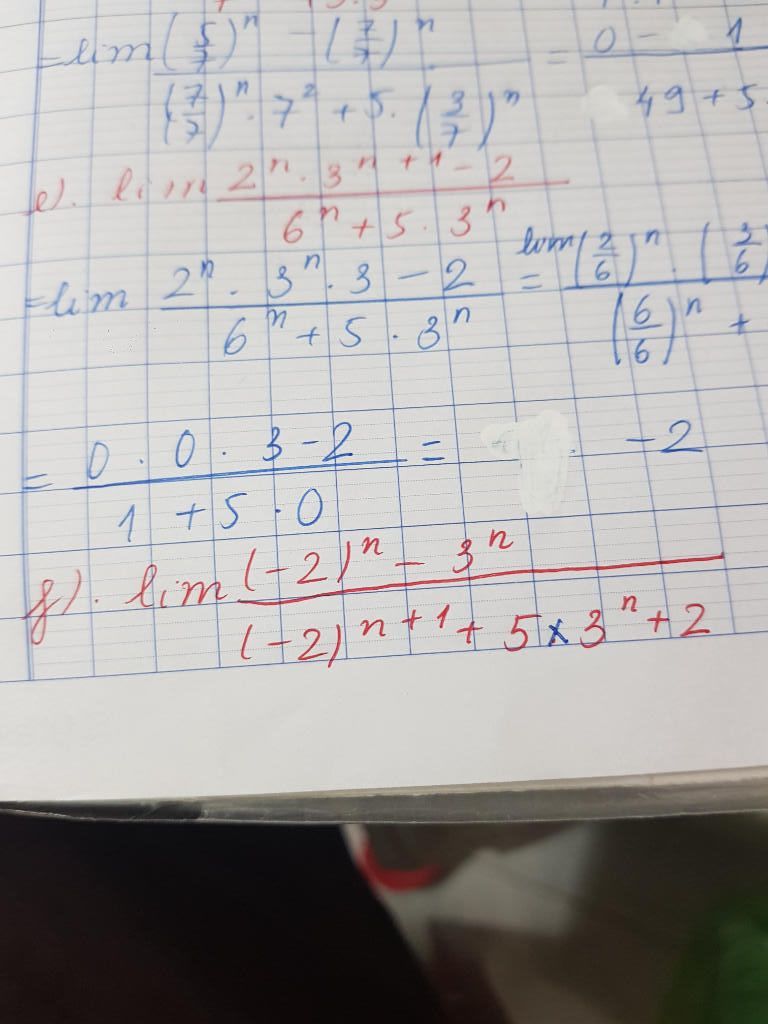 = lim ((5/7)^n - (7/7)^n) / ((7/7)^n . 7^2 + 5 . (3/7)^n) = (0 - 1) / (49 + 5.
e). lim (2^n . 3^{n+1} - 2) / (6^n + 5 . 3^n)
= lim (2^n . 3^n . 3 - 2) / (6^n + 5 . 3^n) = lim ((2/6)^n . (3/6) / ((6/6)^n +
= (0 . 0 . 3 - 2) / (1 + 5 . 0) = -2
f). lim ((-2)^n - 3^n) / ((-2)^{n+1} + 5 × 3^n + 2)